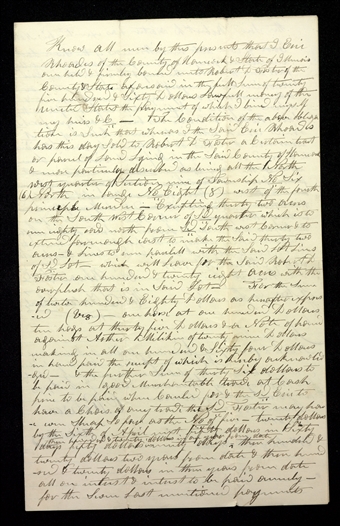 Know all men by this presents that I Eric
Rhoades of the County of Hancock & State of Illinois
am held & firmly bound unto Robert F. Foster of the
County & State aforesaid in the full sum of twenty
five hundred & Sixty Dollars lawfull money of the
United States the payment of which I bind myself
my heirs &c — The Condition of the above Obliga
tion is such that whereas I the Said Eric Rhoades
has this day sold to Robert F Foster a certain tract
or parcel of Land lying in the Said County of Hancock
& more particularly described as being all the North
west quarter of Section of Township No Six
(6) North in range No Eight (8) west of the fourth
principle Meridian — Excepting thirty two acres
on the South west Corner of Sd quarter which is to
run eighty rods north from Sd South west Corner & to
extend far enough east to make the Said thirty two
acres & lines to run parallel with the Said lines
of Sd Lot — which will leave for the Said Robert F
Foster one hundred & twenty eight acres with the
overplush that is in Said Lot — For the Sum
of twelve hundred & Eighty Dollars as hereafter express
ed (viz) — one horse at one hundred Dollars
ten hogs at thirty five Dollars & a Note of hand
against Arthur Miliken of twenty nine Dollars
making in all one hundred & Sixty four Dollars
in hand paid the receipt of which is hereby acknowled
ged — & the further Sum of thirty Six dollars to
be paid in good Merchantable trade at Cash
price to be paid when Called for & the Sd Eric to
have a Choice of any trade the Sd Foster may have
twenty dollars
by the
days Sixty dollars hundred &
twenty dollars two years from date & three hund
red & twenty dollars in three years from date
all on interest & interest to be paid annuly —
for the Seven last mentioned payments